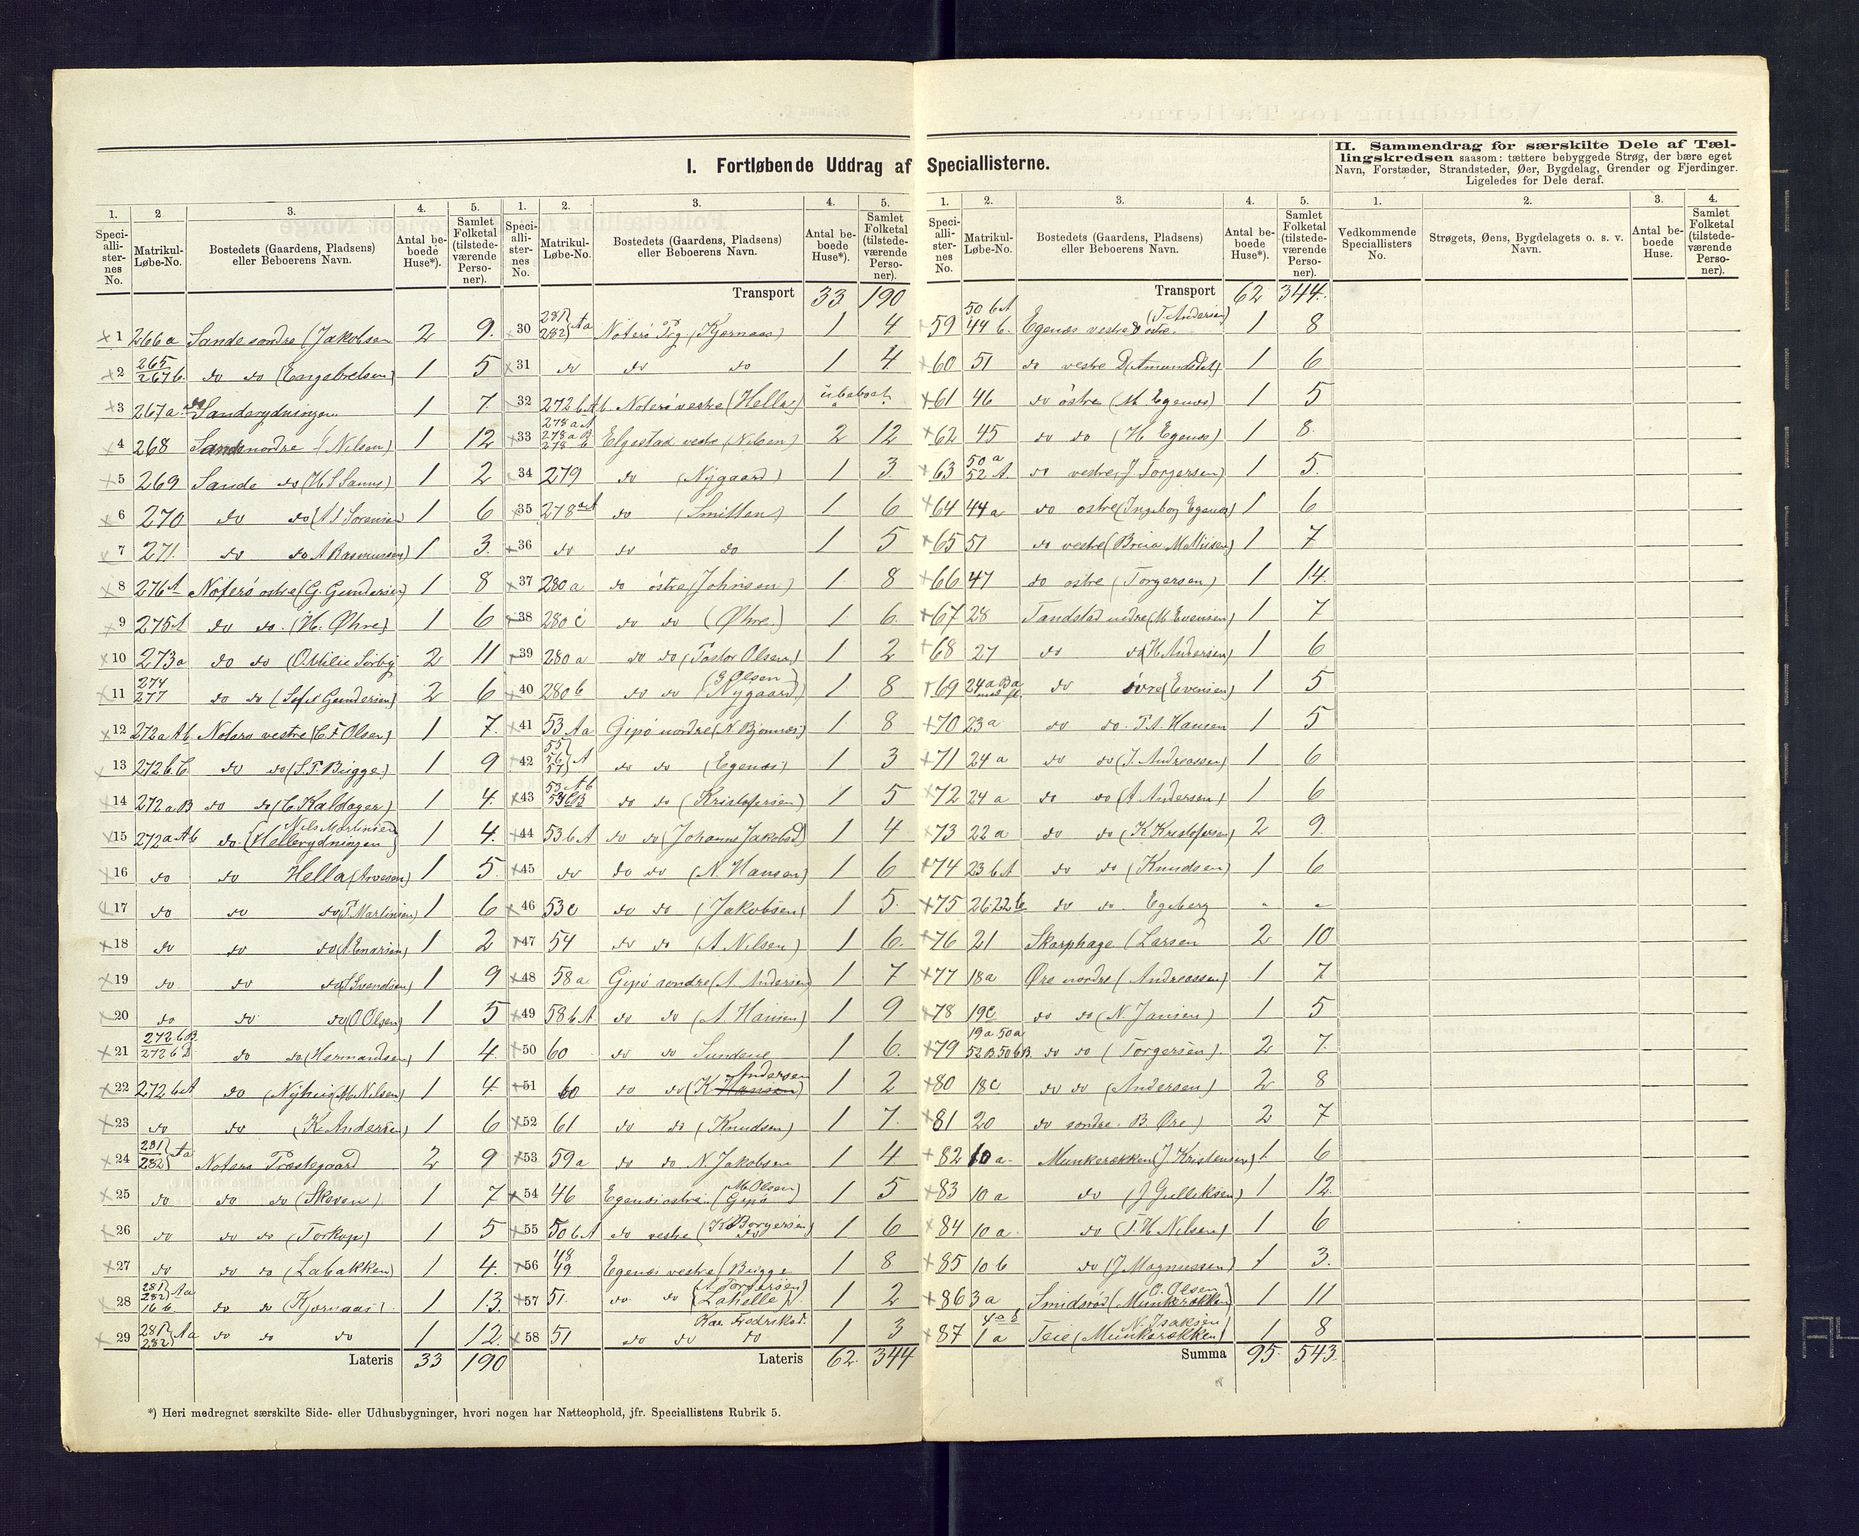 I. Fortløbende Uddrag af Speciallisterne.
II. Sammendrag for særskilte Dele af Tællingskredsen saasom: tættere bebyggede Strøg, der bære eget
Navn, Forstæder, Strandsteder, Øer, Bygdelag, Grender og Fjerdinger.
Ligeledes for Dele deraf.
1. 2 3. 4. 5.
Speciallisternes No. Matrikul-Løbe-No. Bostedets (Gaardens, Pladsens) eller Beboerens Navn. Antal beboede Huse*). Samlet Folketal (tilstedeværende Personer).
1 266a Sande søndre (Jakobsen 2 9.
2 265/267b. do do (Engebretsen) 1 5
3 267a. do Sanderydningen 1 7.
4 268 Sande nordre (Nilsen) 1 12
5 269 Sande do (H S Sanne) 1 2
6 270 do do (A S Sørensen 1 6
7 271. do do A Rasmussen) 1 3.
8 276A Noterø østre (G. Gundersen) 1 8
9 275A do do. (H. Øhre) 1 6
10 273a do do (Ottilie Sørby 2 11
11 274 277 do do (Sofie Gundersen) 2 6
12 272a Ab Noterø vestre (C F Olsen) 1 7.
13 272b.C. do do (S. P. Bugge) 1 9
14 272a B do do (C Kaldager) 1 4.
15 272a Ab do. (Nils Martinsen Hellerydningen) 1 4.
16 do do Hella (Arvesen) 1 5.
17 do do do P. Martinsen) 1 6
18 do do do (A Enarsen) 1 2
19 do do do (S Svendsen) 1 9
20 do do do (O Olsen) 1 5
21 272 b B. 272 b D do do (Hermandsen) 1 4.
22 272 b A do (Nyhus M. Nilsen) 1 4.
23 do do (K. Andersen) 1 6
24 281 282 Aa Noterø Præstegaard 2 9
25 do do do (Skoven) 1 7
26 do do do (Torkop) 1 5
27 do do do (Labakken) 1 4.
28 281 282 Aa 16 b. do do (Kjørnaas) 1 13.
29 281 282 Aa do do do 1 12.
Lateris 33 190
1. 2. 3. 4. 5.
Speciallisternes No. Matrikul-Løbe-No. Bostedets (Gaardens, Pladsens) eller Beboerens Navn. Antal beboede Huse*). Samlet Folketal (tilstedeværende Personer).
Transport 33 190
30 281 282 Aa Noterø Pg. (Kjørnaas) 1 4
31 do do do 1 4
32 272 b A b. Noterø vestre (Hella) ubeboet
33 278 a A 278 a B 278 b Elgestad vestre (Nilsen) 2 12
34 279 do (Nygaard) 1 3.
35 278 a A do (Smitten) 1 6
36 do do do 1 5
37 280 a do østre (Johnsen) 1 8
38 280 c do do (Øhre) 1 6.
39 280 a do do (Pastor Olsen) 1 2
40 280 b do do (Olsen Nygaard) 1 8
41 53 Aa Gipø nordre (N. Bjønnes) 1 8
42 55 56 57 A do do (Egenæs) 1 3
43 53 A b 53 b B do do (Kristofersen) 1 5
44 53 b A do do (Johannes Jakobsd) 1 4
45 do do do (N. Hansen) 1 6
46 53 c do do (Jakobsen) 1 5.
47 54 do do (A. Nilsen) 1 6.
48 58 a Gipø søndre (A. Andersen) 1 7
49 58 b A do do (A. Hansen) 1 9
50 60 do do Sundene 1 6.
51 60 do do (K. Hansen Andersen) 1 2
52 61 do do (Knudsen) 1 7.
53 59 a do do N. Jakobsen 1 4
54 46 Egenæs østre (M. Olsen Gipø) 1 5
55 50 b A do vestre (K. Borgersen do) 1 6
56 48 49 Egenæs vestre (Bugge 1 8
57 51. do do (A. Torgersen Lahelle) 1 2
58 51 do do do 1 3
Lateris 62 344
1. 2. 3. 4. 5.
Speciallisternes No. Matrikul-Løbe-No. Bostedets (Gaardens, Pladsens) eller Beboerens Navn. Antal beboede Huse*). Samlet Folketal (tilstedeværende Personer).
Transport 62 344.
59 50 b A 44 b. Egenæs vestre & østre (T. Andersen) 1 8
60 51 do vestre 1 6
61 46 do østre (M. Egenæs) 1 5
62 45 do do (H. Egenæs) 1 8.
63 50 a 52 A do vestre (J Torgersen) 1 5.
64 44 a do østre (Ingeborg Egenæs) 1 6
65 51 do vestre ( Mathisen) 1 7
66 47 do østre (Torgersen) 1 14.
67 28 Tandstad nedre (M. Evensen) 1 7
68 27 do do (H. Andersen) 1 6
69 24 a B a do øvre (Evensen) 1 5
70 23 a do do. P. A. Hansen 1 5
71 24 a do do (J. Andreassen) 1 6
72 24 a do do (A Andersen) 1 6
73 22 a do do (K. Kristofersen) 2 9.
74 23 b A do do (Knudsen) 1 6
75 26 22 b do do. Egeberg - -
76 21 Skarphage (Larsen 2 10
77 18 a Øre nordre (Andreassen) 1 7
78 19 c do do (N. Jansen) 1 5
79 19 a 50 a 52 B. 50 b B. do do (Torgersen) 2 7.
80 18 c do do (Andersen) 2 8
81 20 do søndre. B. Øre) 2 7
82 10 a. Munkerækken (J. Kristensen) 1 6
83 10 a do (J Gulliksen) 1 12.
84 10 a do (T. H. Nilsen) 1 6
85 10 b do (J Magnussen) 1 3.
86 3 a Smidsrød (O. Olsen Munkerækken) 1 11
87 1 a Teie (N. Isaksen Munkerækken) 1 8
Summa 95. 543.
1. 2. 3. 4.
Vedkommende Speciallisters No. Strøgets, Øens, Bygdelagets o. s. v. Navn. Antal beboede Huse. Samlet Folketal (tilstedeværende Personer).
*) Heri medregnet særskilte Side- eller Udhusbygninger, hvori nogen har Natteophold, jfr. Speciallistens Rubrik 5.